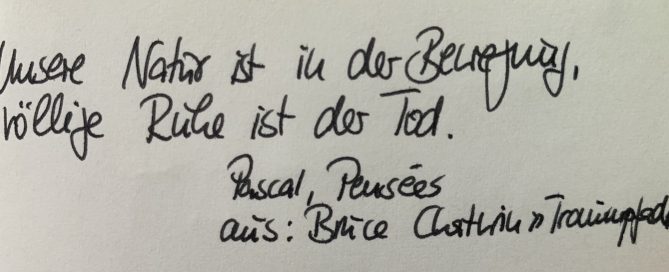 Unsere Natur ist in der Bewegung,
völlige Ruhe ist der Tod.
Pascal, Pensées
aus: Bruce Chatwin »Traumpfade